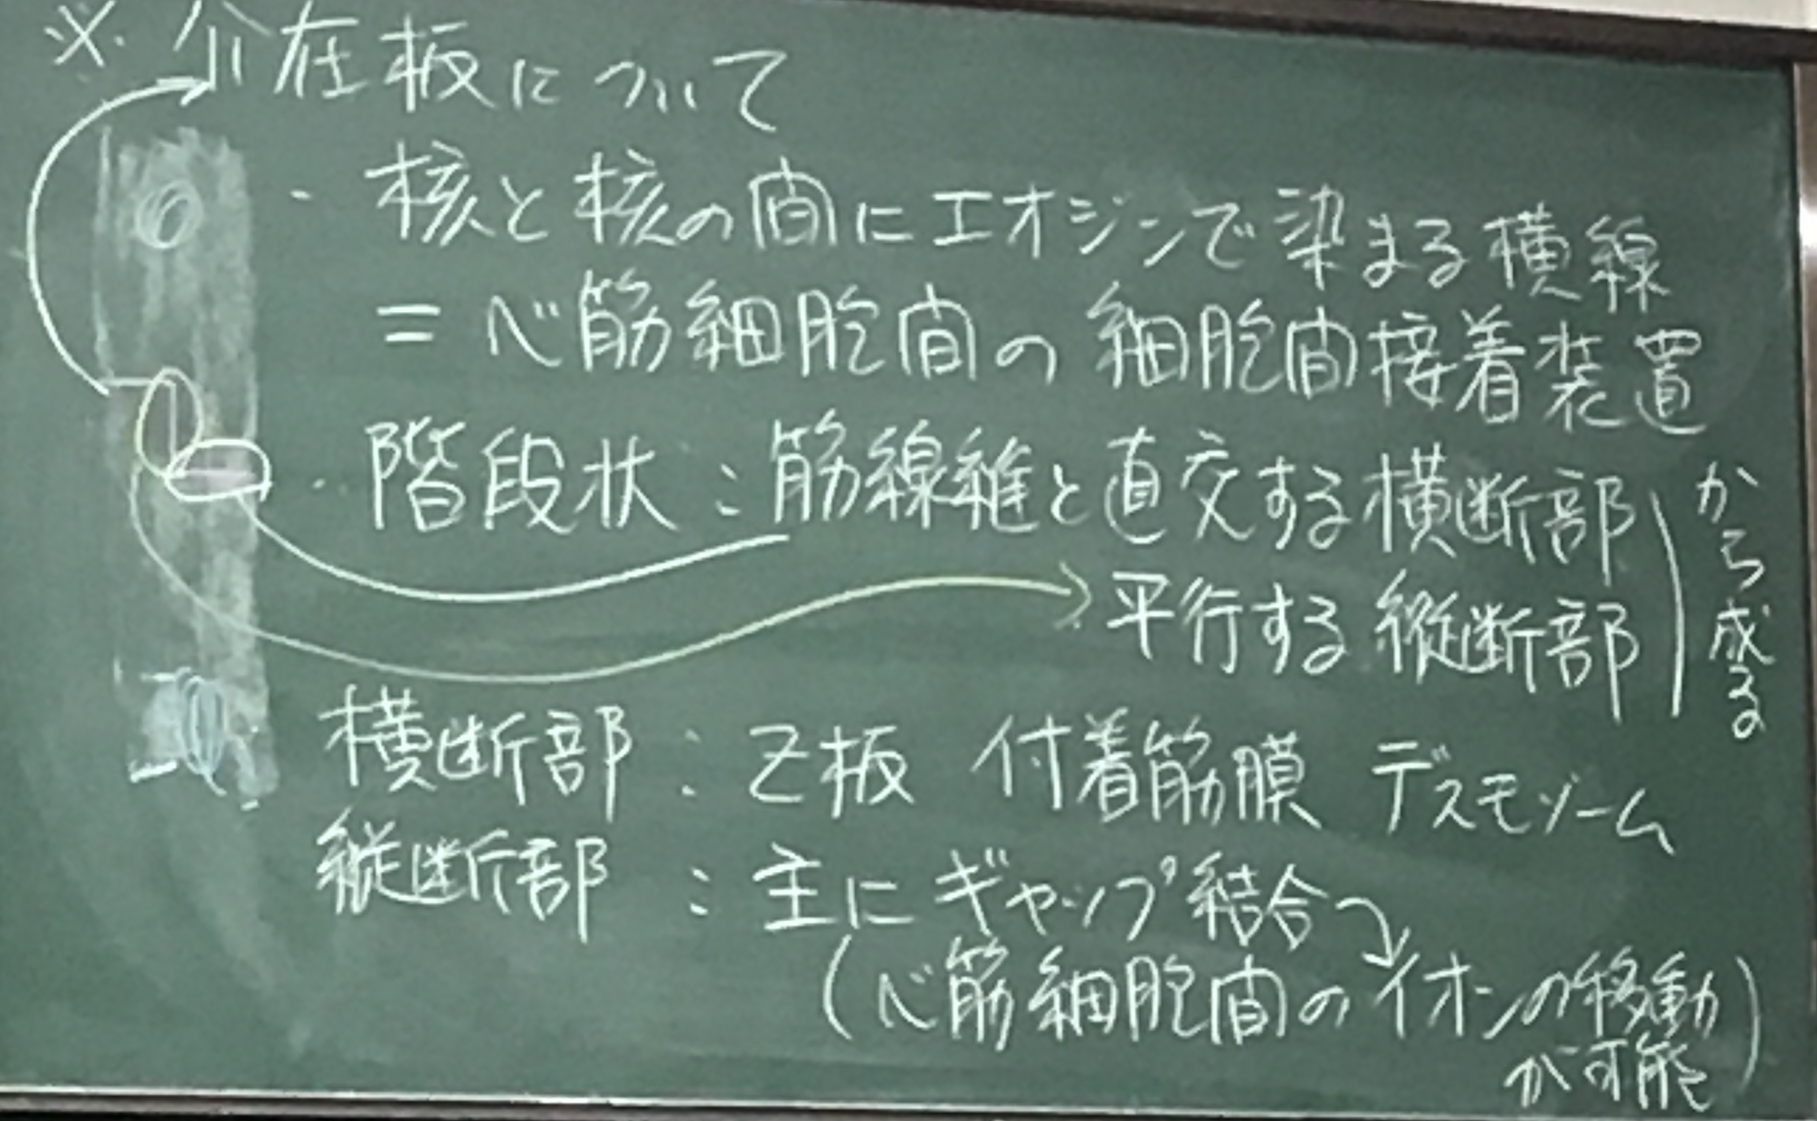 ※ 介在板について
・核と核の間にエオジンで染まる横線
= 心筋細胞間の細胞間接着装置
・階段状：筋線維と直交する横断部
平行する縦断部
から成る
横断部：Z板 付着筋膜 デスモゾーム
縦断部：主にギャップ結合
(心筋細胞間のイオンの移動
が可能)